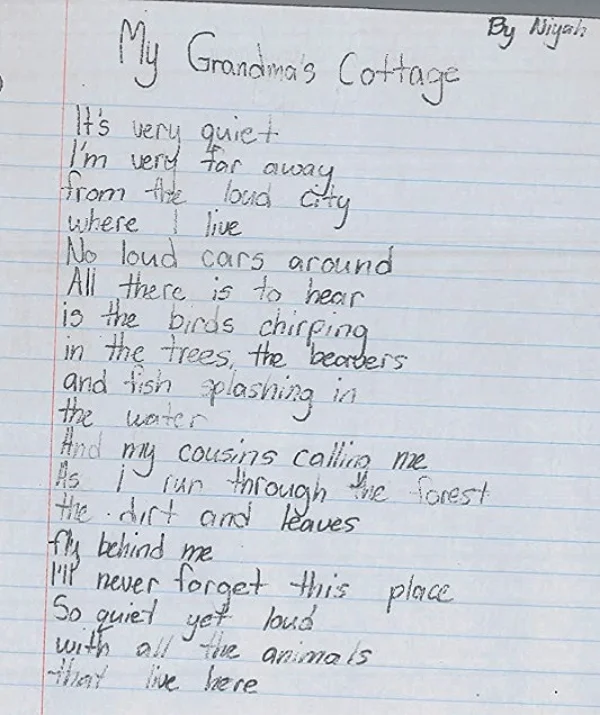 By Niyah
My Grandma's Cottage
It's very quiet
I'm very far away
from the loud city
where I live
No loud cars around
All there is to hear
is the birds chirping
in the trees, the beavers
and fish splashing in
the water
And my cousins calling me
As i run through the forest
the dirt and leaves
fly behind me
I'll never forget this place
So quiet yet loud
with all the animals
that live here